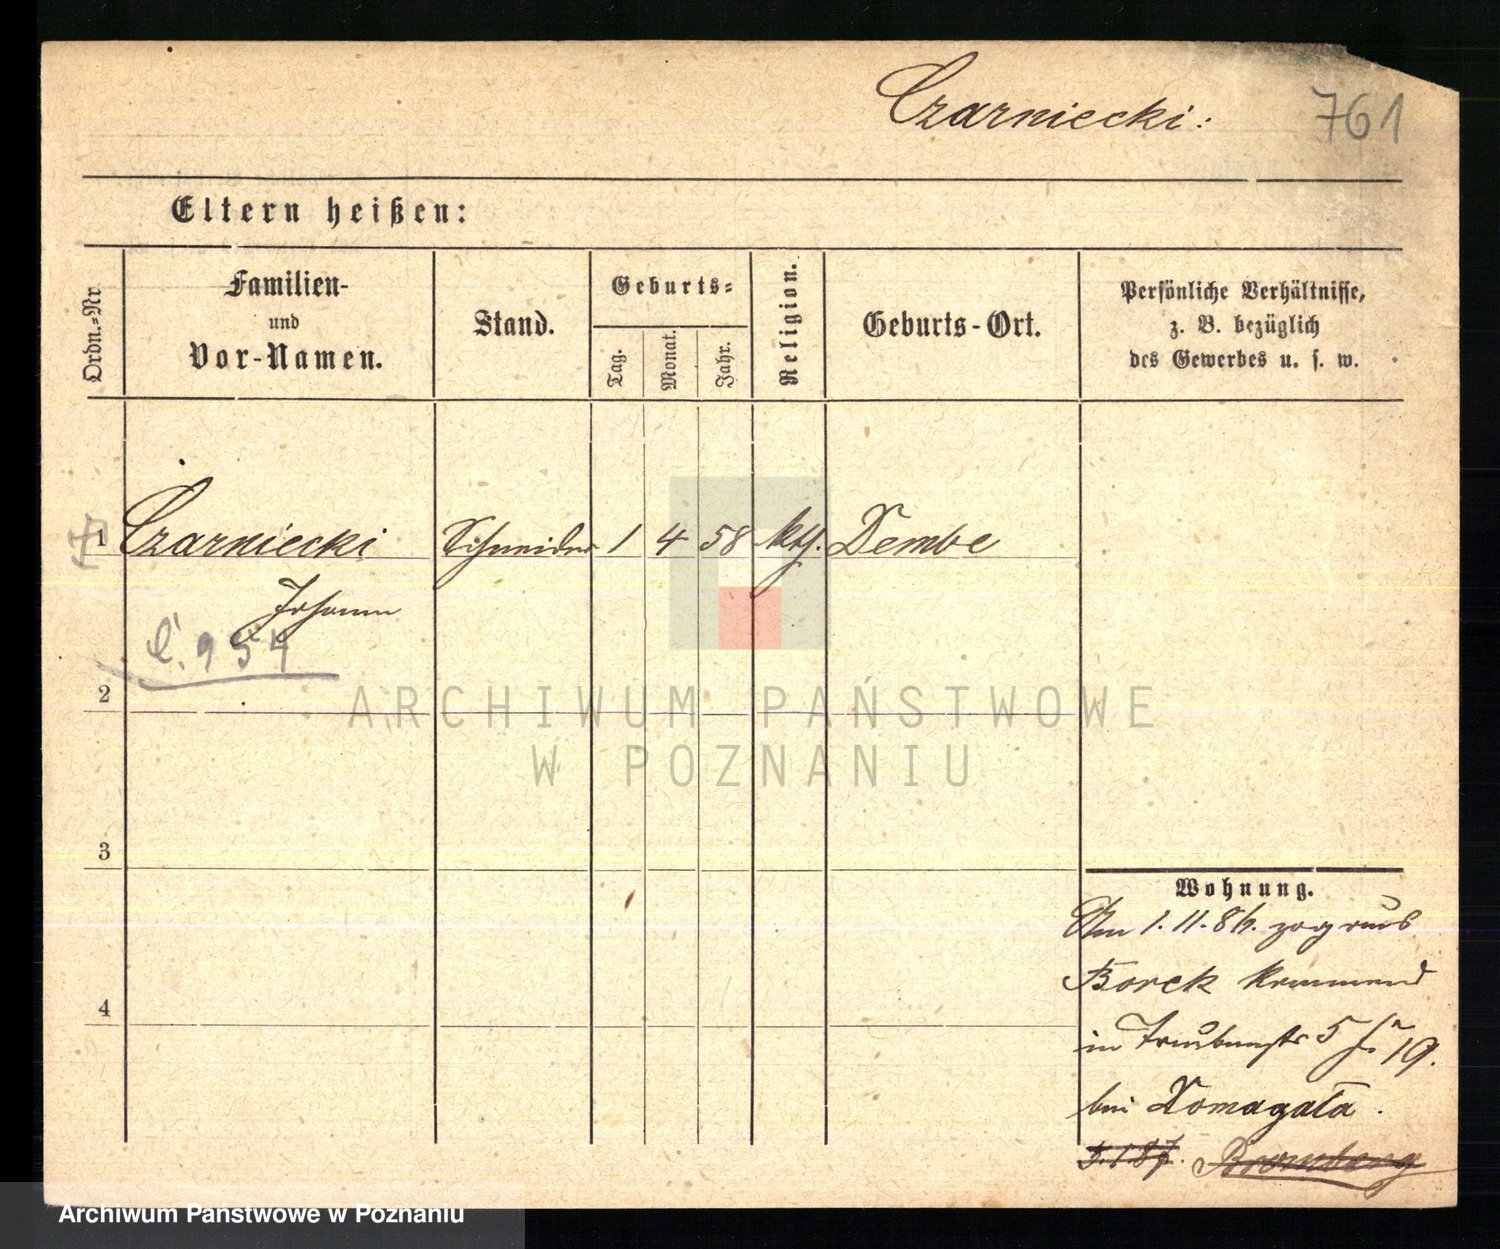 Czarniecki:
761
Eltern heißen:
Ordn.-Nr.
Familien-
und
Vor-Namen.
Stand.
Geburts-
Tag.
Monat.
Jahr.
Religion.
Geburts-Ort.
Persönliche Verhältnisse,
z. B. bezüglich
des Gewerbes u. s. w.
1 Czarniecki Schneider 1 4 58 kth. Dembe
Johann
C. 954
2
ARCHIWUM PAŃSTWOWE
W POZNANIU
3
Wohnung.
Am 1.11.86. zog aus
Borek kommend
4
in Taubenstr 5 19.
bei Domagała.
Bromberg
Archiwum Państwowe w Poznaniu